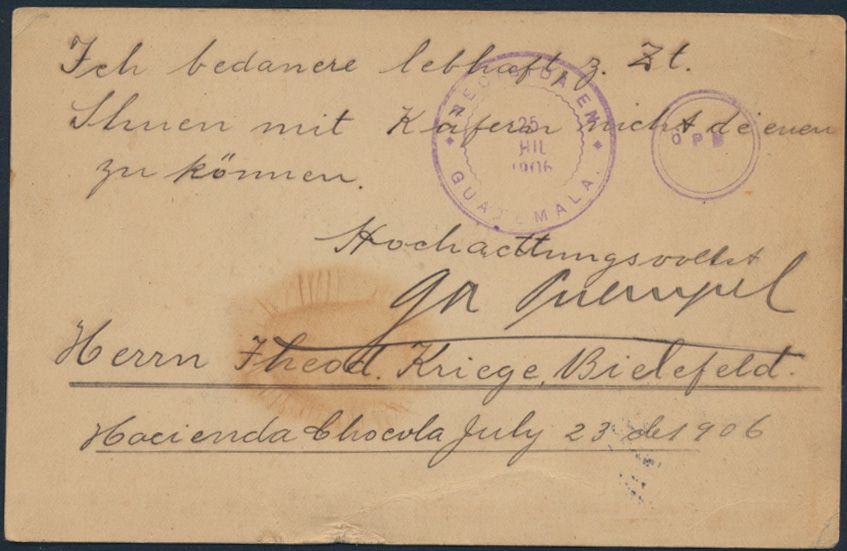 Ich bedauere lebhaft, z. Zt.
Ihnen mit Käfern nicht dienen
zu können.
Hochachtungsvollst
Herrn Theod. Kriege, Bielefeld.
Hacienda Chocola July 23 de 1906
RECIBIDA EN
25
JUL
1906
GUATEMALA.